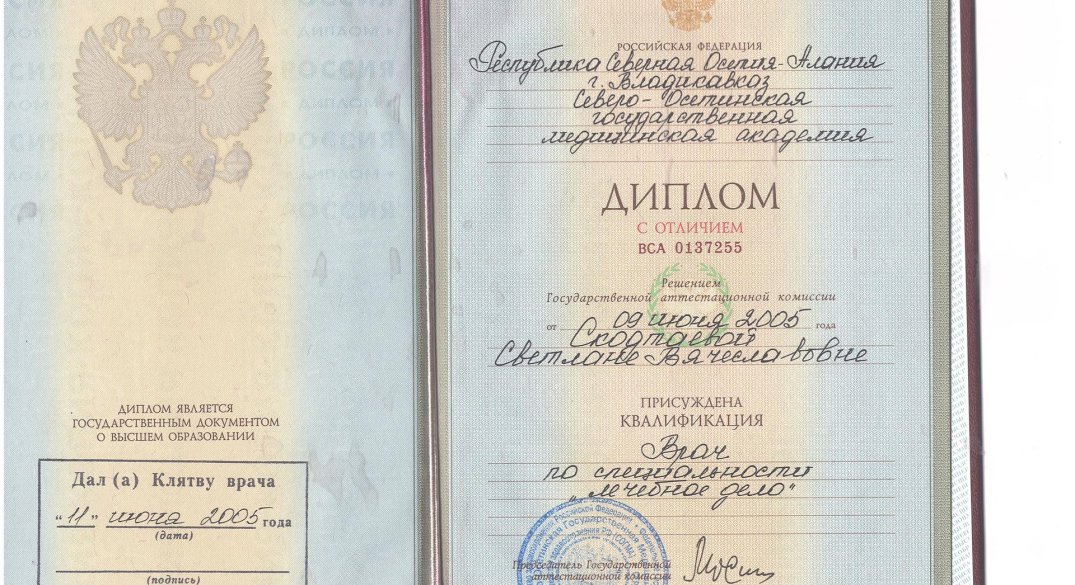 ДИПЛОМ ЯВЛЯЕТСЯ
ГОСУДАРСТВЕННЫМ ДОКУМЕНТОМ
О ВЫСШЕМ ОБРАЗОВАНИИ
Дал (а) Клятву врача
"11" июня 2005 года
(дата)
(подпись)
РОССИЙСКАЯ ФЕДЕРАЦИЯ
Республика Северная Осетия-Алания
г. Владикавказ
Северо-Осетинская
государственная
медицинская академия
ДИПЛОМ
С ОТЛИЧИЕМ
ВСА 0137255
Решением
Государственной аттестационной комиссии
от 09 июня 2005 года
Скодтаевой
Светлане Вячеславовне
ПРИСУЖДЕНА
КВАЛИФИКАЦИЯ
Врач
по специальности
"лечебное дело"
Председатель Государственной
аттестационной комиссии